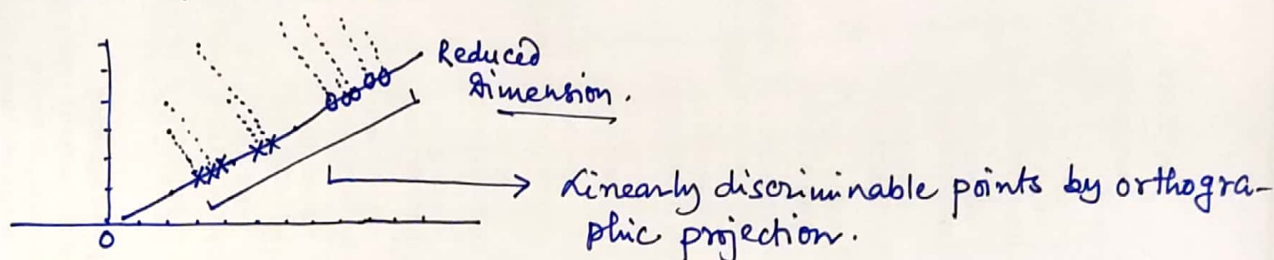 Reduced
Dimension.
Linearly discriminable points by orthogra-
phic projection.
0